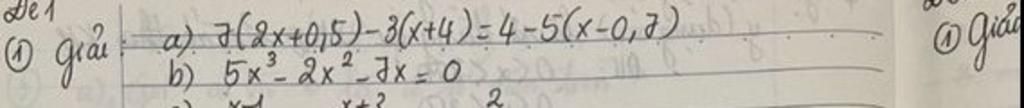 Đề 1
① giải: a) 7(2x+0,5)-3(x+4)=4-5(x-0,7)
b) 5x³-2x²-7x=0
① giải